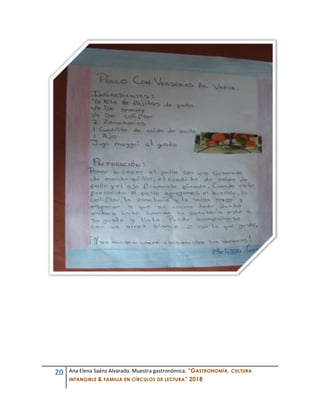 POLLO CON VERDURAS AL VAPOR.
INGREDIENTES:
1/2 Kilo de Fajitas de pollo.
1/4 De
1/4 De coliflor
2 Zanahorias
1 Cuadrito de caldo de pollo
1 Ajo
Jugo maggi al gusto
PREPARACIÓN:
Poner a cocer el pollo con una cucharada
de mantequilla, el cuadrito de caldo de
pollo y el ajo finamente picado, Cuando este
precocido el pollo agregamos el
coliflor, la zanahoria y la salsa maggi y
esperar a que se cocine todo Junto
estara listo cuando la zanahoria este a
su gusto y listo. Puede acompañarse
con un arroz blanco o con lo que guste.
¡Y no olviden
Melissa
20 Ana Elena Saénz Alvarado. Muestra gastronómica. "GASTRONOMÍA, CULTURA
INTANGIBLE & FAMILIA EN CÍRCULOS DE LECTURA" 2018